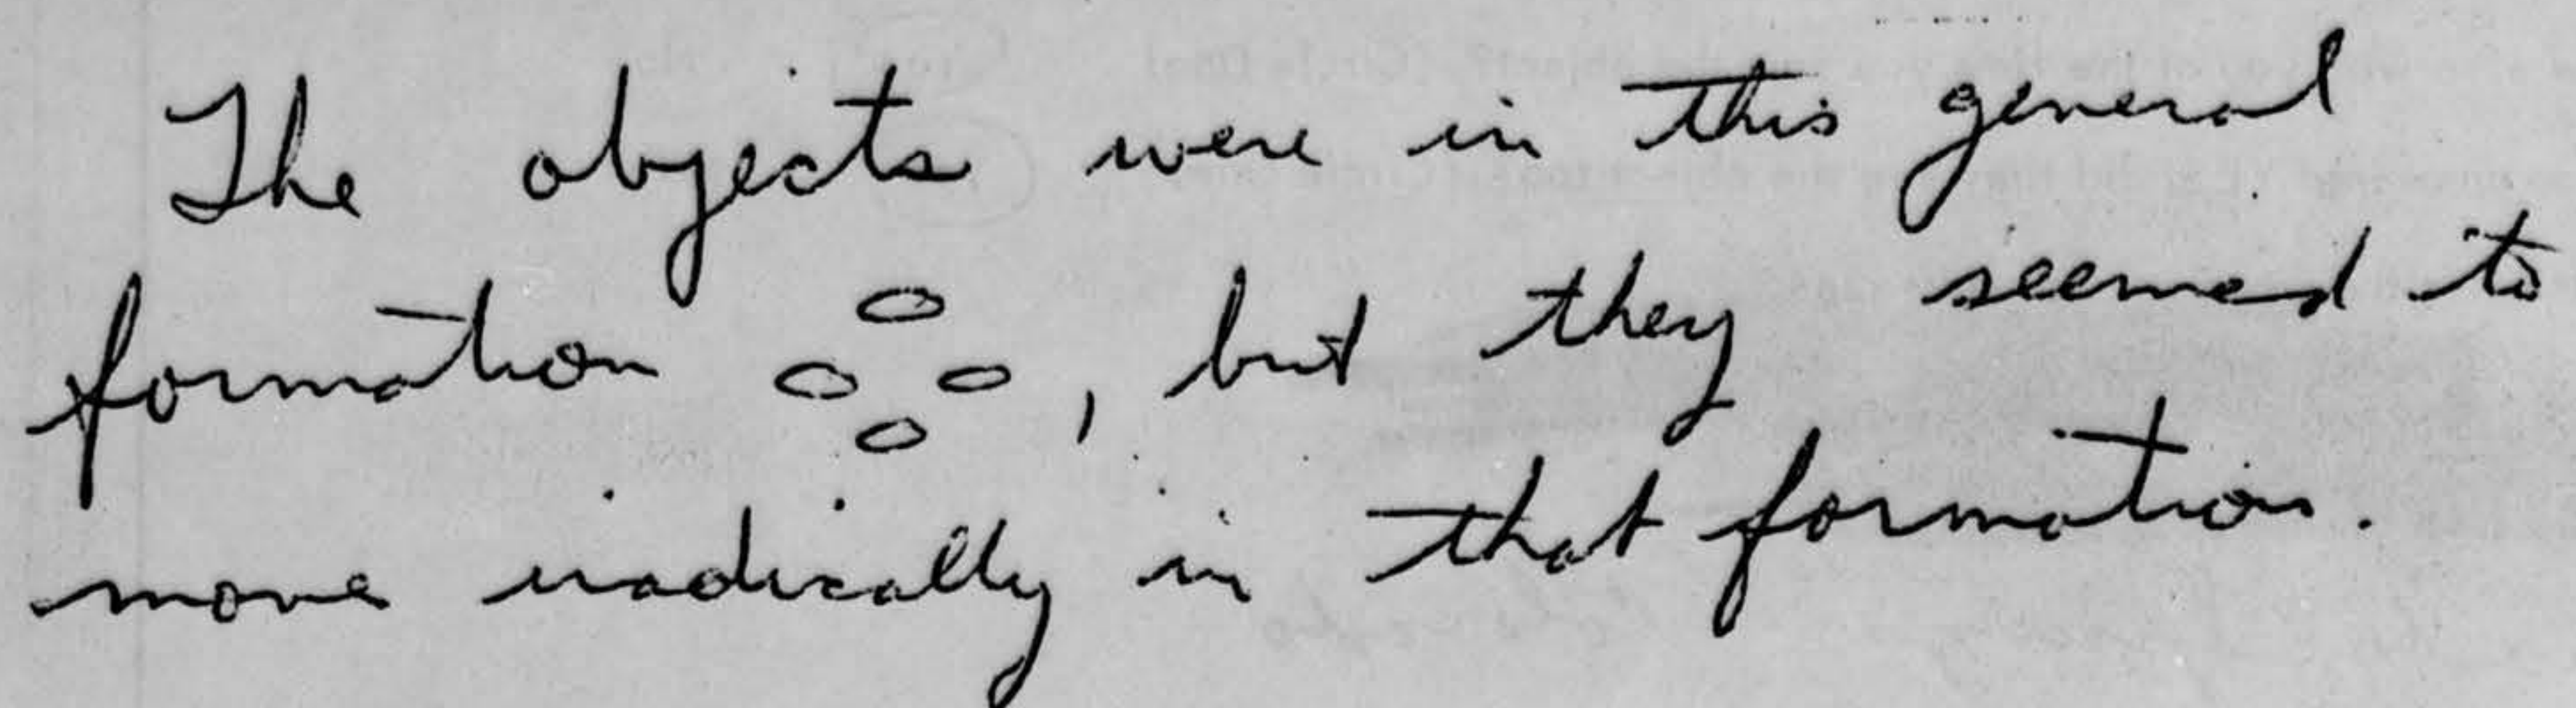 The objects were in this general
formation , but they seemed to
move iradically in that formation.